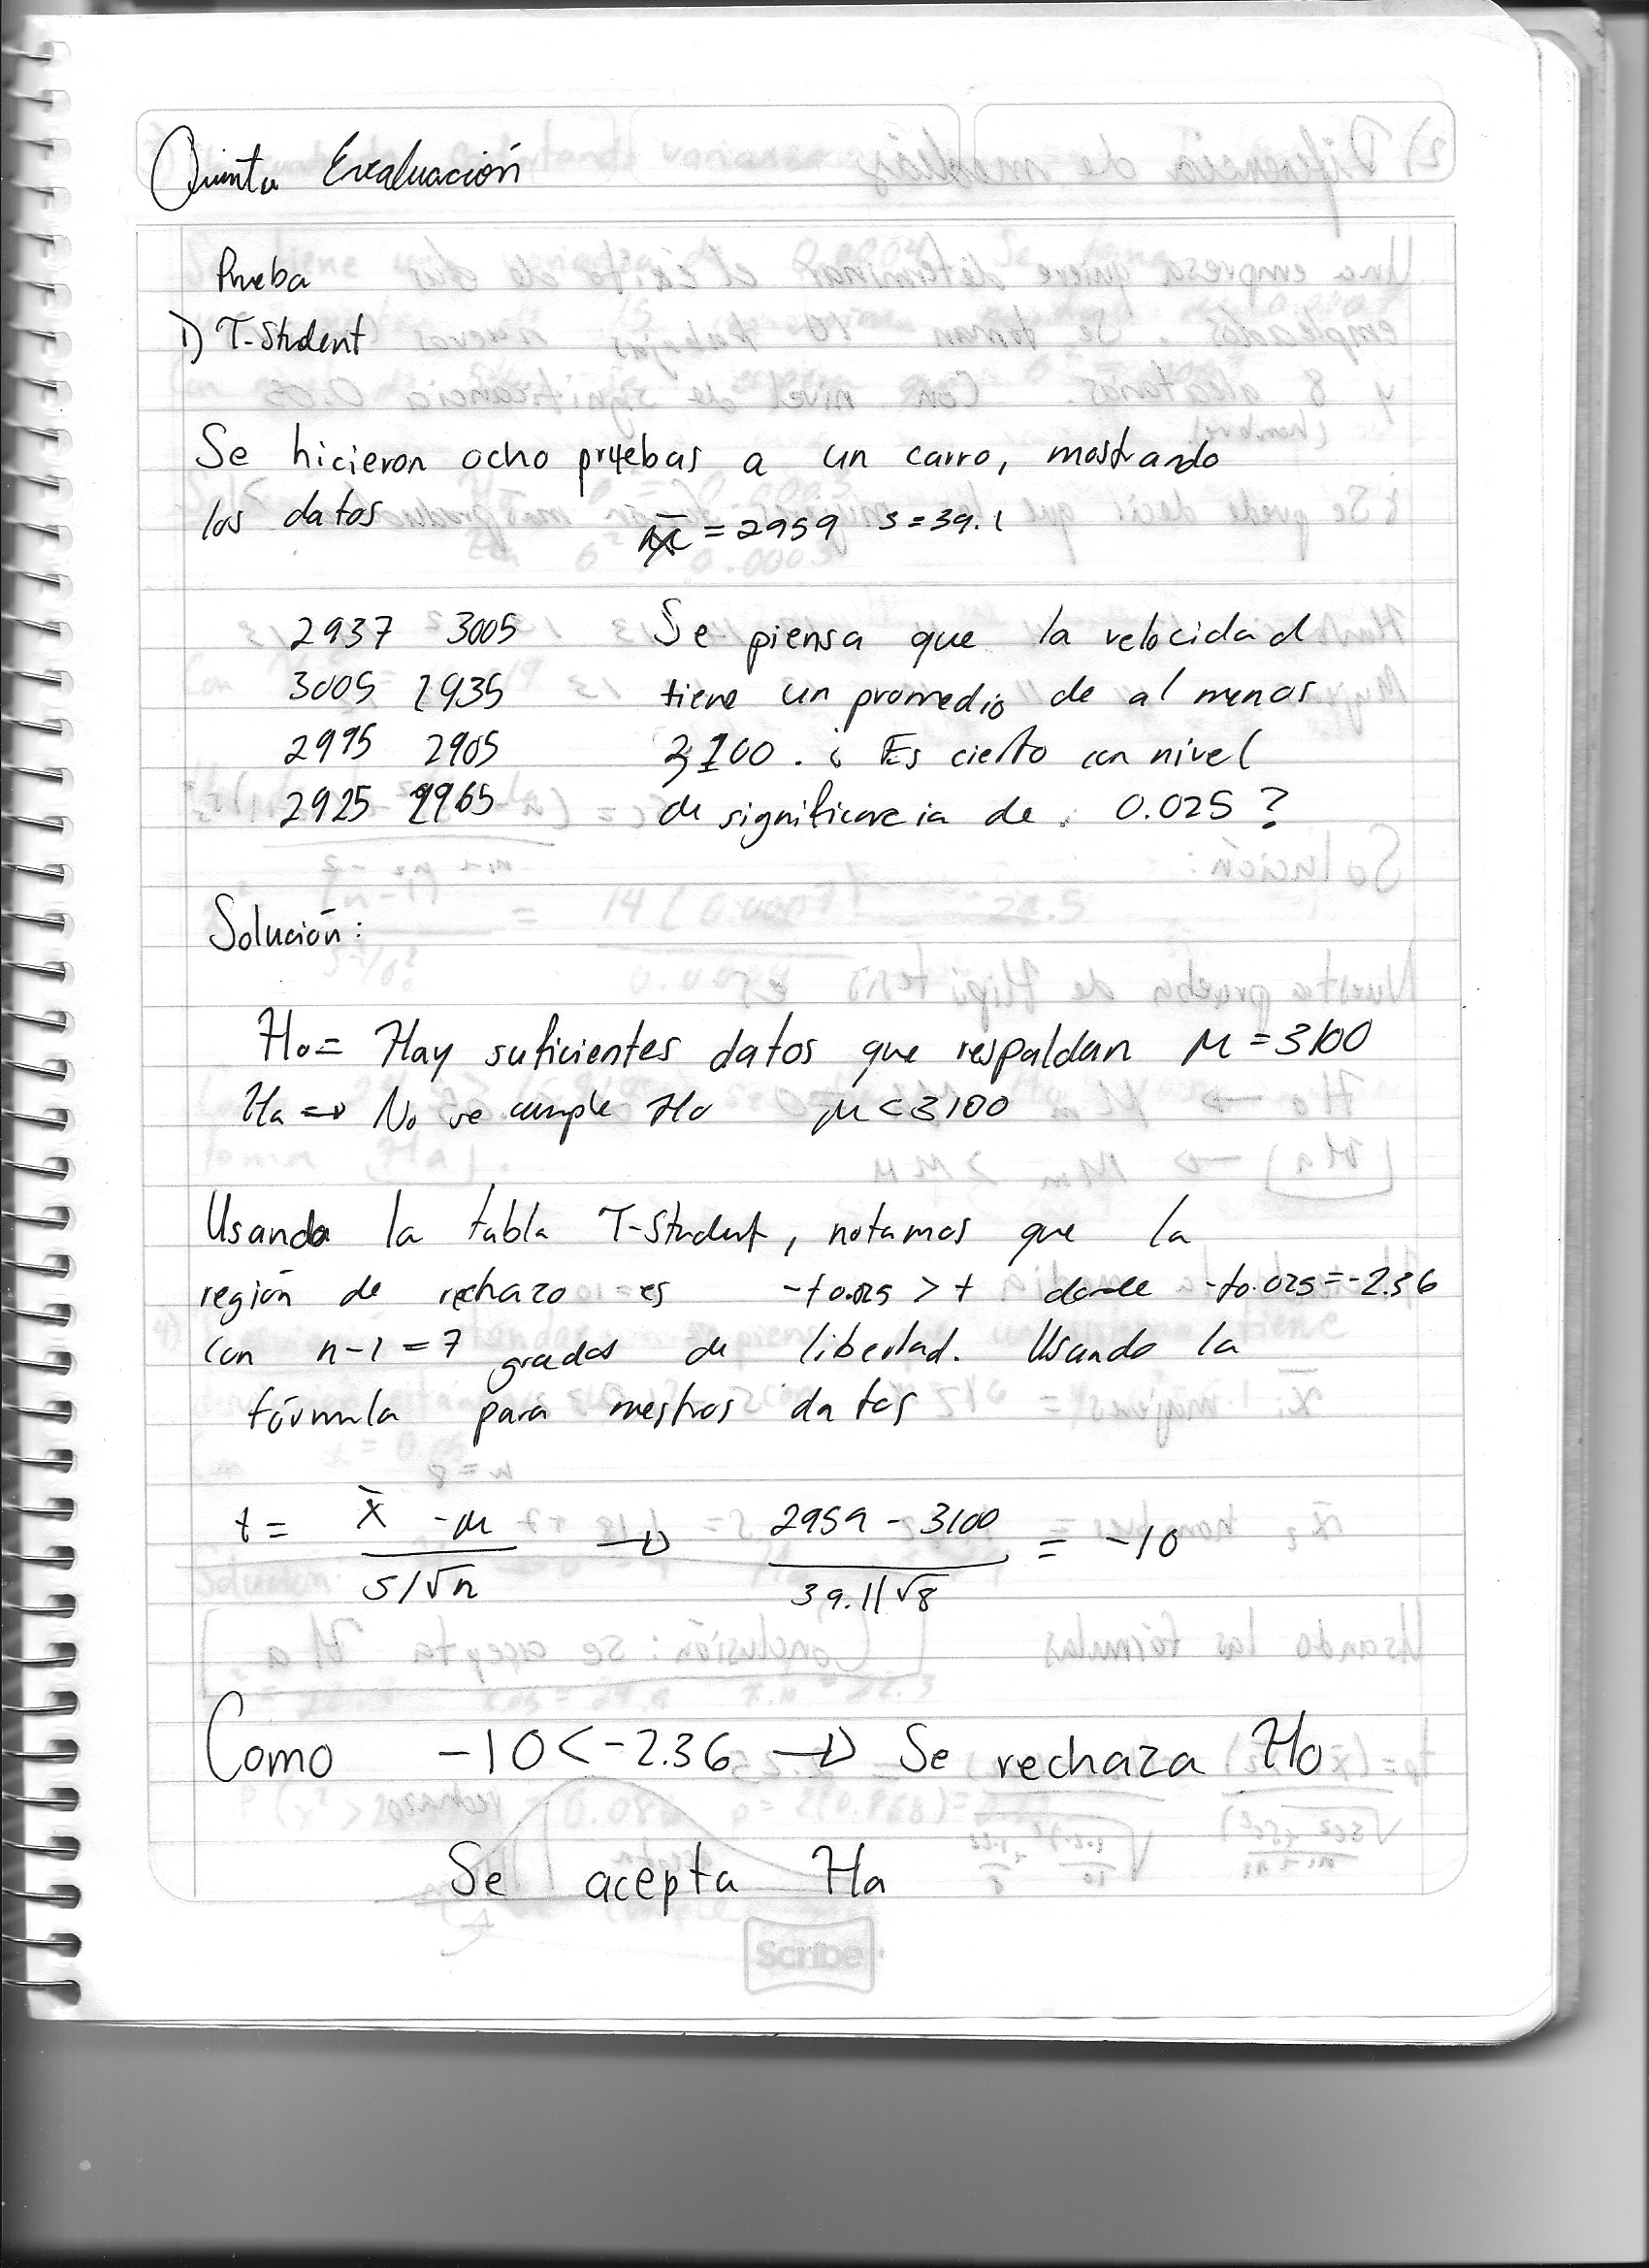 Quinta Evaluación
Prueba
1) T-Student
Se hicieron ocho pruebas a un carro, mostrando
los datos = 2959 s = 39.1
2937 3005 Se piensa que la velocidad
3005 2935 tiene un promedio de al menos
2995 2905 3100. ¿ Es cierto con nivel
2925 2965 de significancia de 0.025 ?
Solución:
Ho = Hay suficientes datos que respaldan M = 3100
Ha => No se cumple Ho μ < 3100
Usando la tabla T-Student, notamos que la
región de rechazo es -t0.025 > t donde -t0.025 = -2.36
con n-1 = 7 grados de libertad. Usando la
fórmula para nuestros datos
t = x̄ - μ / s/√n → 2959 - 3100 / 39.1/√8 = -10
Como -10 < -2.36 → Se rechaza Ho
Se acepta Ha
Scribe